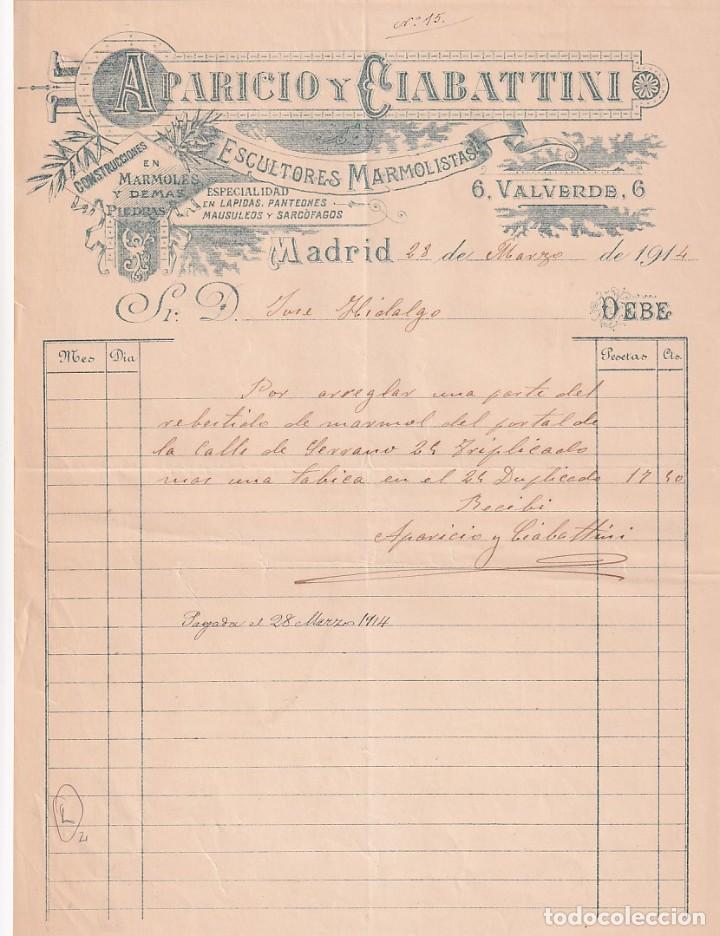 Nº 15.
APARICIO Y CIABATTINI
ESCULTORES MARMOLISTAS
CONSTRUCCIONES
EN
MARMOLES
Y DEMAS
PIEDRAS
ESPECIALIDAD
EN LAPIDAS, PANTEONES
MAUSULEOS Y SARCÓFAGOS
6, VALVERDE, 6
Madrid 28 de Marzo de 1914
Sr. D. Jose Hidalgo DEBE
Mes Dia Pesetas Cts.
Por arreglar una parte del
rebestido de marmol del portal de
la Calle de Serrano 24 Triplicado
mas una tabica en el 24 Duplicado 17 50
Recibi
Aparicio y Ciabattini
Pagada el 28 Marzo 1914
L
todocoleccion